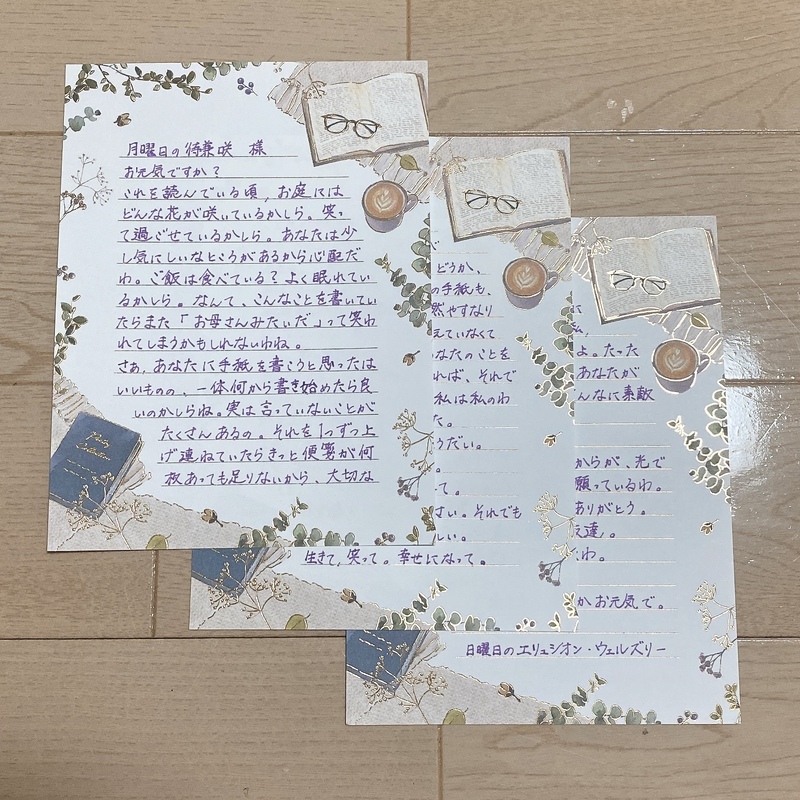 月曜日の待兼咲 様
お元気ですか？
これを読んでいる頃、お庭には
どんな花が咲いているかしら。笑っ
て過ごせているかしら。あなたは少
し気にしいなところがあるから心配だ
わ。ご飯は食べている？よく眠れてい
るかしら。なんて、こんなことを書いてい
たらまた「お母さんみたいだ」って笑わ
れてしまうかもしれないわね。
さあ、あなたに手紙を書こうと思ったは
いいものの、一体何から書き始めたら良
いのかしらね。実は言っていないことが
たくさんあるの。それを1つずつ上
げ連ねていたらきっと便箋が何
枚あっても足りないから、大切な
どうか、
の手紙も、
燃やすなり
えていなくて
なたのことを
れば、それで
私は私のわ
た。
うだい。
。
て。
さい。それでも
しい。
生きて、笑って。幸せになって。
私、
よ。たった
あなたが
んなに素敵
からが、光で
願っているわ。
ありがとう。
え達。
わ。
かお元気で。
日曜日のエリュシオン・ウェルズリー
Poetry
Collection